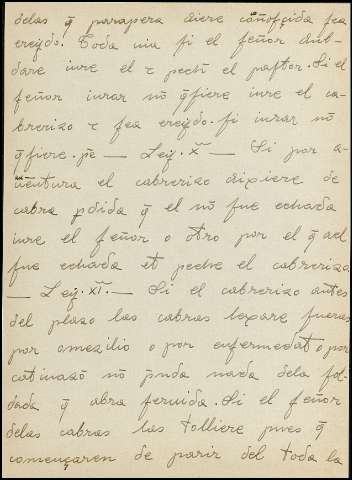 delas q̄ parapera diere coñosçida sea
creydo. Toda uia si el señor dub-
dare iure el e pech el pastor. Si el
señor iurar nō q̄siere iure el ca-
brerizo e sea creydo. si iurar nō
q̄siere. p̄e — Ley. x — Si por a-
uentura el cabrerizo dixiere de
cabra pdida q̄ el nō fue echada
iure el señor o otro por el q̄ acl
fue echada et peche el cabrerizo
— Ley. xi. — Si el cabrerizo antes
del plazo las cabras lexare fueras
por omezilio o por enfermedat o por
catiuazō nō p̄nda nada dela sol-
dada q̄ abra seruida. Si el señor
delas cabras las tolliere pues q̄
começaren de parir del toda la